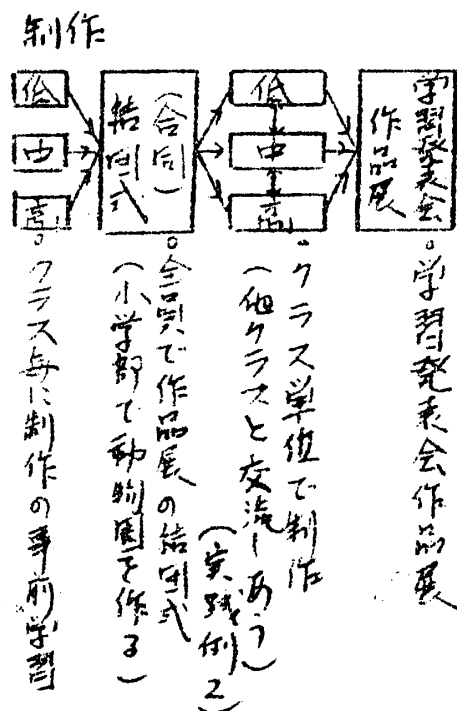 制作
低
中
高
(合同)
結団式
低
中
高
学習発表会
作品展
。クラス毎に制作の事前学習
。全員で作品展の結団式
(小学部で動物園を作る)
。クラス単位で制作
(他クラスと交流しあう)
(実践例2)
。学習発表会作品展